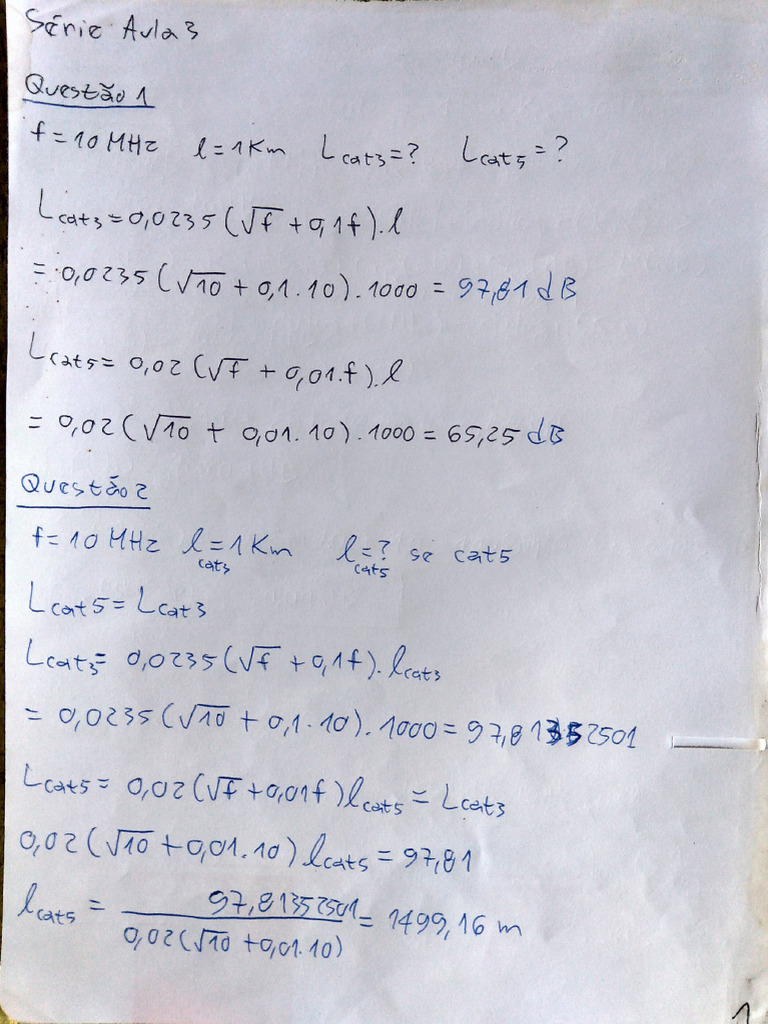 Série Aula 3
Questão 1
f = 10 MHz l = 1 Km Lcat3 = ? Lcat5 = ?
Lcat3 = 0,0235 (√f + 0,1f).l
= 0,0235 (√10 + 0,1.10).1000 = 97,81 dB
Lcat5 = 0,02 (√f + 0,01.f).l
= 0,02 (√10 + 0,01.10).1000 = 65,25 dB
Questão 2
f = 10 MHz lcat3 = 1 Km lcat5 = ? se cat5
Lcat5 = Lcat3
Lcat3 = 0,0235 (√f + 0,1f).lcat3
= 0,0235 (√10 + 0,1.10).1000 = 97,81352501
Lcat5 = 0,02 (√f + 0,01f) lcat5 = Lcat3
0,02 (√10 + 0,01.10) lcat5 = 97,81
lcat5 = 97,81352501 / 0,02 (√10 + 0,01.10) = 1499,16 m
1